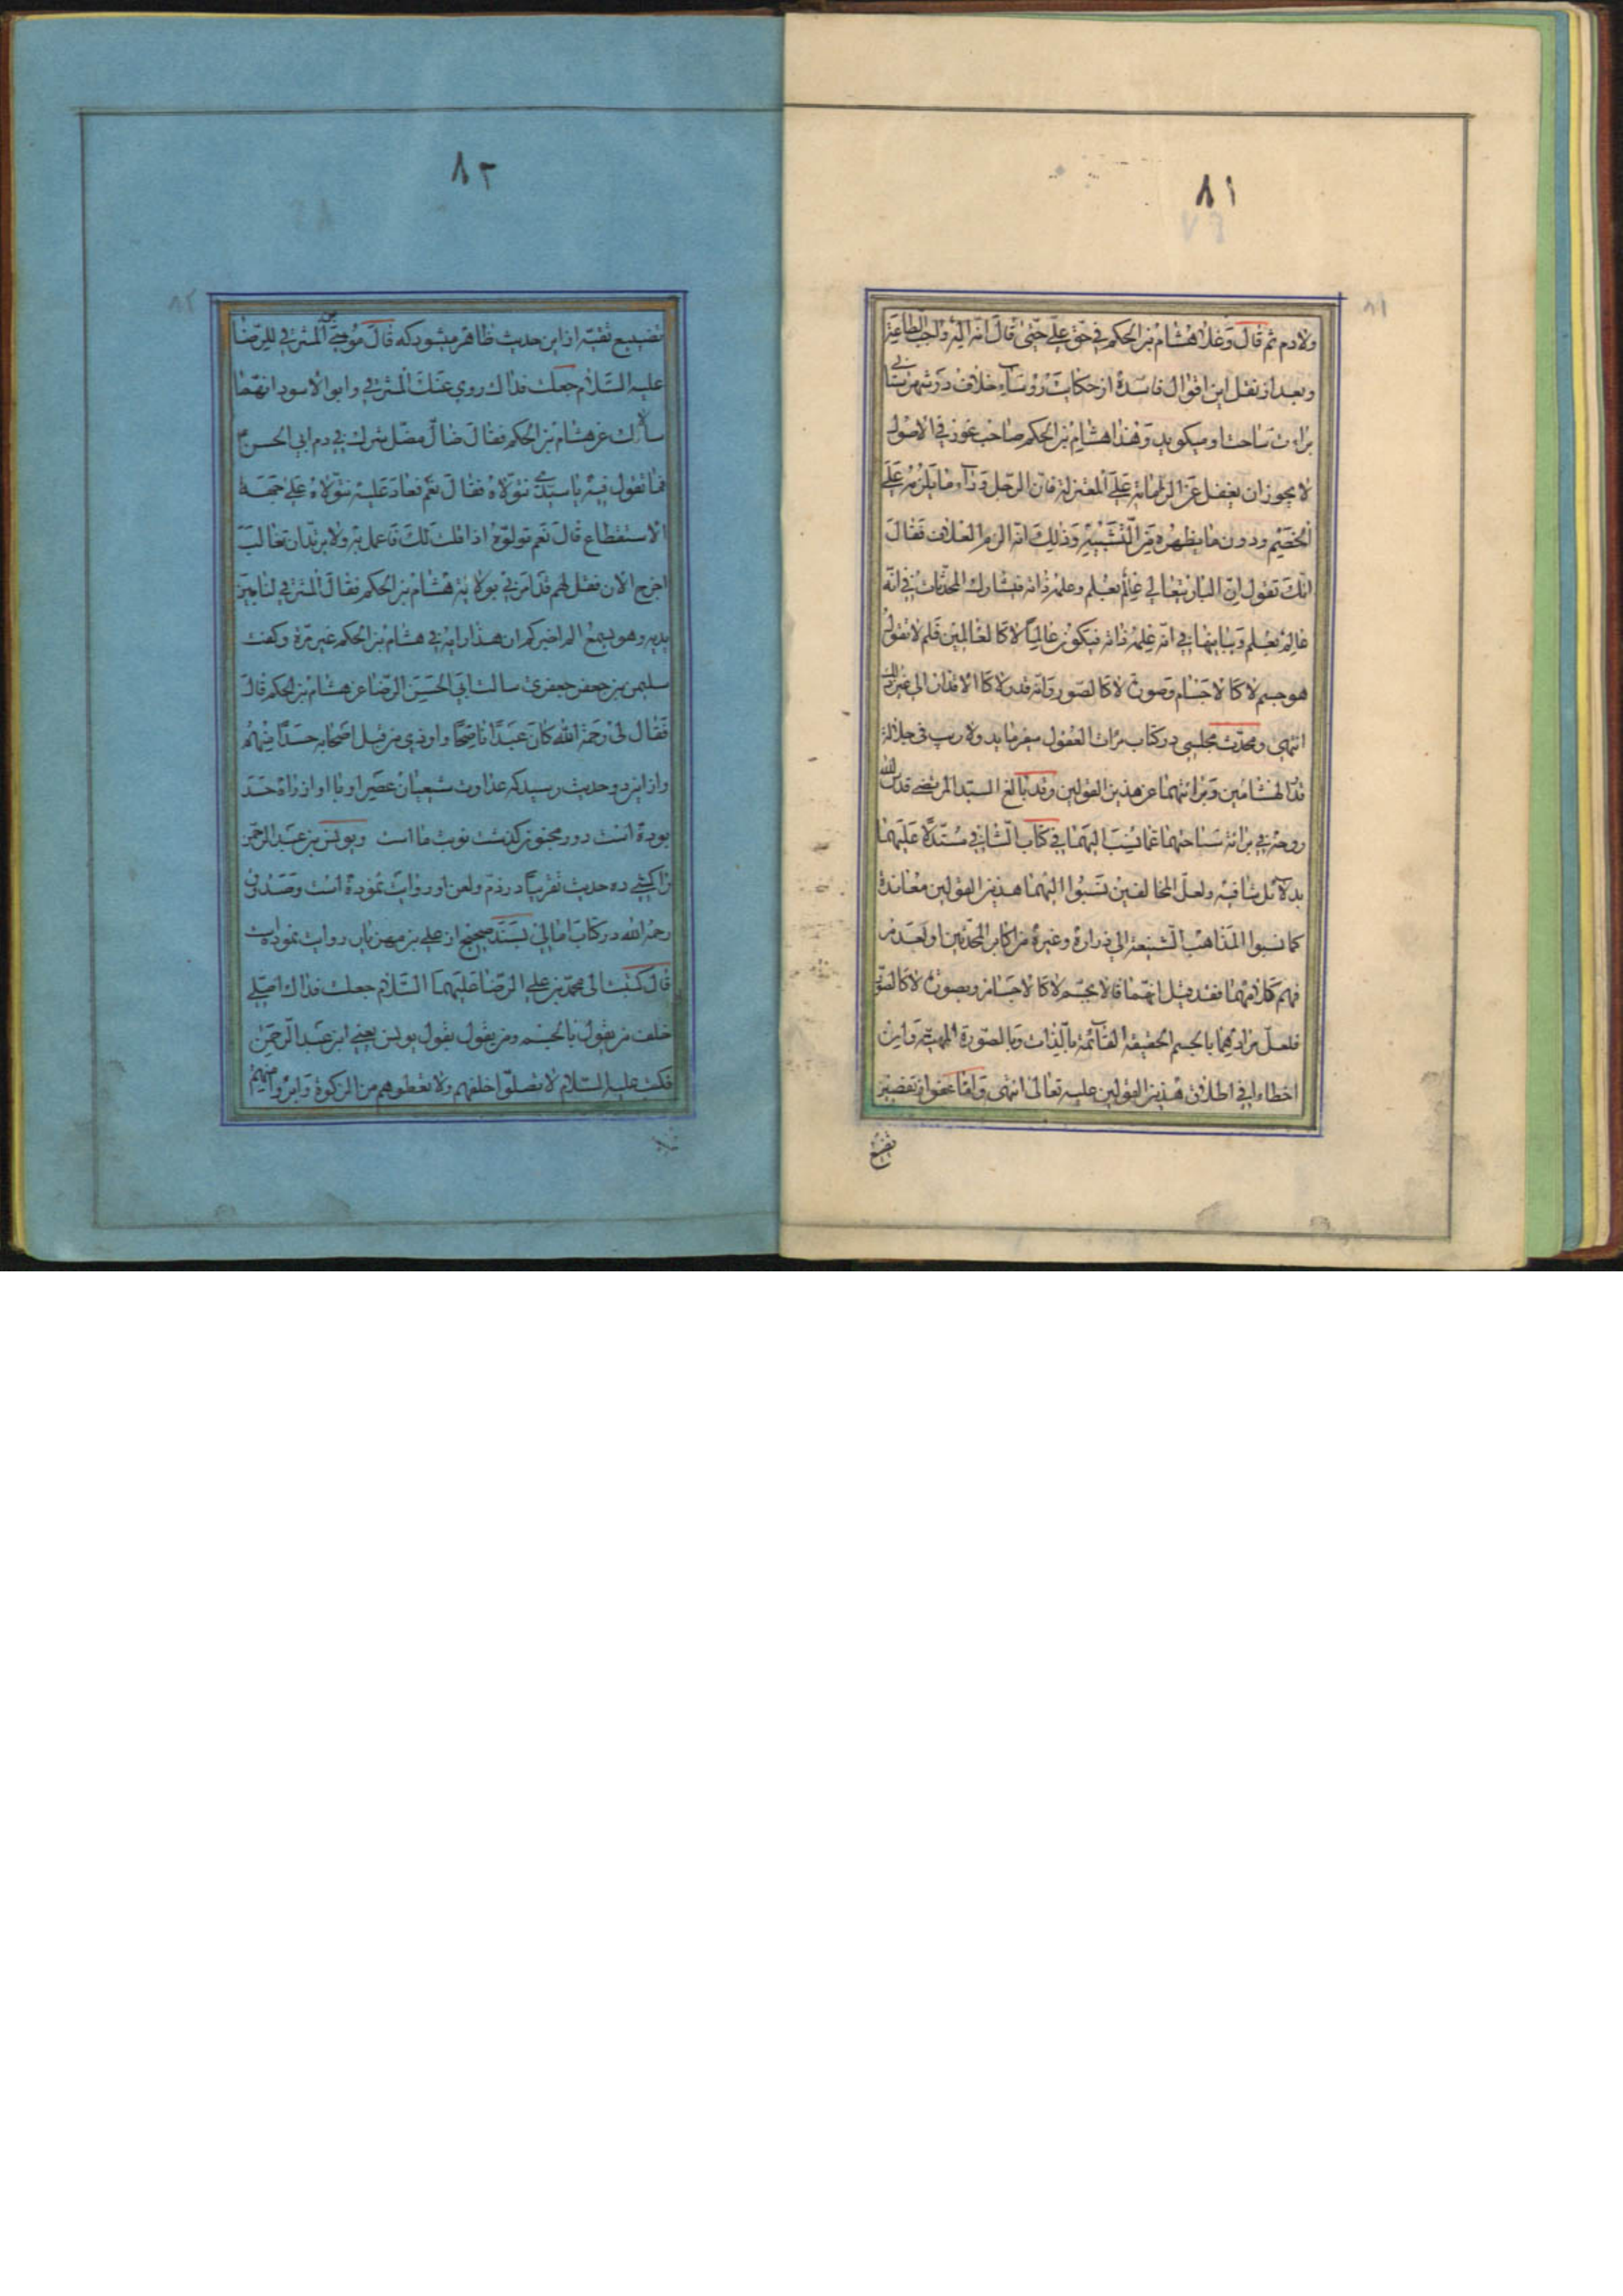 ٨١
ولا دم ثم قال وغلا هشام بن الحكم في حق علي حتى قال انه اله واجب الطاعة
وبعد از نقل این اقوال فاسده از حکایت رؤساء خلاف در شهرستانی
براءت ساحت او میکوید وهذا هشام بن الحكم صاحب غور في الاصول
لا يجوز ان يغفل عن الزاماته على المعتزلة فان الرجل وراء ما يلزمه على
الخصم ودون ما يظهره من التشبيه وذلك انه الزم العلاف فقال
انك تقول ان الباري تعالى عالم بعلم وعلمه ذاته فيشارك المحدثات في انه
عالم بعلم ويباينها في ان علمه ذاته فيكون عالما لا كالعالمين فلم لا تقول
هو جسم لا كالاجسام وصورة لا كالصور وله قدر لا كالاقدار الى غير ذلك
انتهى ومحدث مجلسی در کتاب مرات العقول میفرماید ولا ريب في جلالة
قدر الهشامين وبرائتهما عن هذين القولين وقد بالغ السيد المرتضى قدس الله
روحه في برائة ساحتهما عما نسب اليهما في كتاب الشافي مستدلا عليهما
بدلائل شافية ولعل المخالفين نسبوا اليهما هذين القولين معاندة
كما نسبوا المذاهب الشنيعة الى زرارة وغيره من اكابر المحدثين او لعدم
فهم كلامهما فقد قيل انهما قالا بجسم لا كالاجسام وبصورة لا كالصور
فلعل مرادهما بالجسم الحقيقة القائمة بالذات وبالصورة المهية وان
اخطاء في اطلاق هذين القولين عليه تعالى انتهى واما عفو از تقصیر
تضییع
٨٢
تضییع تقیه از این حدیث ظاهر میشود که قال موسى بن المشرقي للرضا
عليه السلام جعلت فداك روى عنك المشرقي وابو الاسود انهما
سألاك عن هشام بن الحكم فقال ضال مضل شرك في دم ابي الحسن ع
فما تقول فيه يا سيدي نتولاه فقال نعم فعاد عليه نتولاه على جهة
الاستقطاع قال نعم تولوه اذا قلت لك فاعمل به ولا تريد ان تغالب
اخرج الان فقل لهم قد امرني بولاية هشام بن الحكم فقال المشرقي لنا بين
يديه وهو يسمع الم اخبركم ان هذا رايه في هشام بن الحكم غير مرة وکفت
سليمن بن جعفر جعفری سالت ابي الحسن الرضا عن هشام بن الحكم قال
فقال لى رحمه الله كان عبدا ناصحا واوذى من قبل اصحابه حسدا منهم
واز این دو حدیث رسید که عداوت شیعیان عصر او با او از راه حسد
بوده است دور مجنون کذشت نوبت ما است ویونس بن عبد الرحمن
را کشی ده حدیث تقریبا در ذم ولعن او روایت نموده است وصدوق
رحمه الله در کتاب امالی بسند صحیح از علی بن مهزیار روایت نموده است
قال كتبت الى محمد بن علي الرضا عليهما السلام جعلت فداك اصلي
خلف من يقول بالجسم ومن يقول بقول يونس يعني ابن عبد الرحمن
فكتب عليه السلام لا تصلوا خلفهم ولا تعطوهم من الزكوة وابرؤا منهم